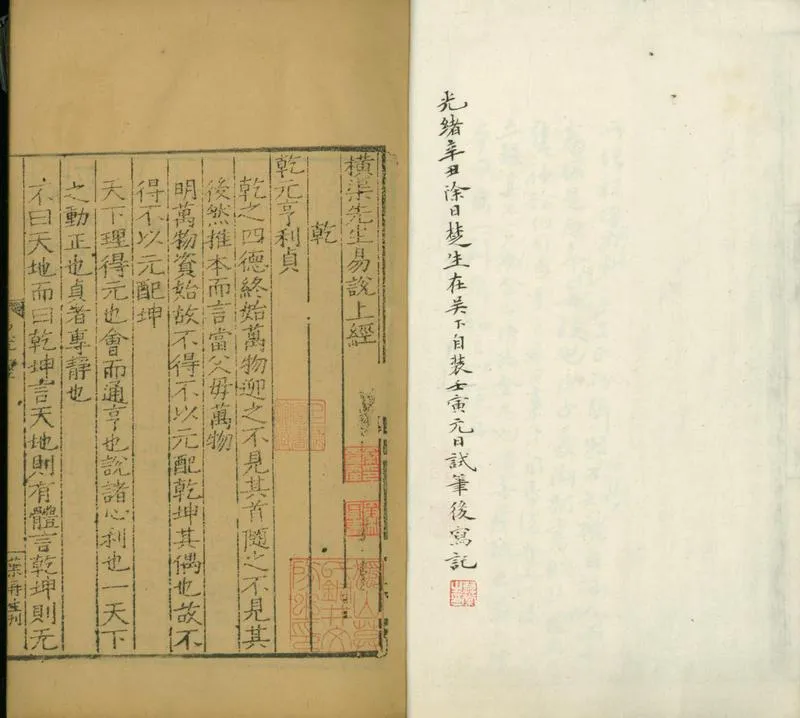 光緒辛丑除日楚生在吳下自裝壬寅元日試筆後寫記
橫渠先生易說上經
乾
乾元亨利貞
乾之四德終始萬物迎之不見其首隨之不見其
後然推本而言當父母萬物
明萬物資始故不得不以元配乾坤其偶也故不
得不以元配坤
天下理得元也會而通亨也說諸心利也一天下
之動正也貞者專靜也
不曰天地而曰乾坤言天地則有體言乾坤則无
葉再生刊